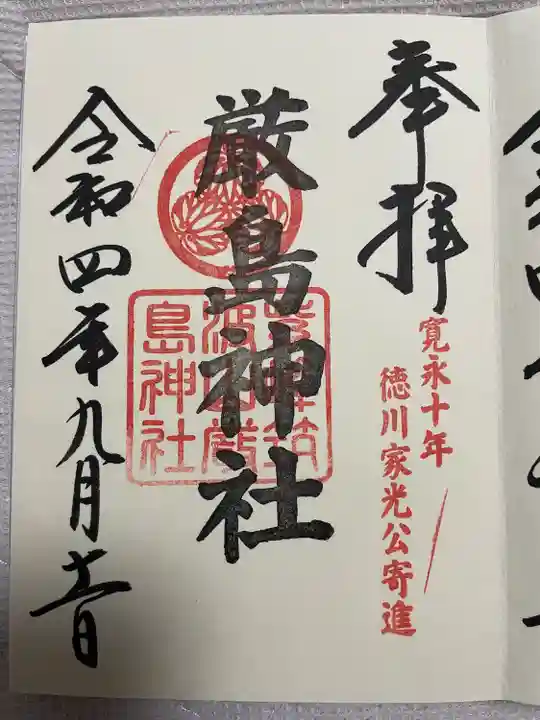 奉拝
寛永十年
徳川家光公寄進
厳島神社
令和四年九月十一日